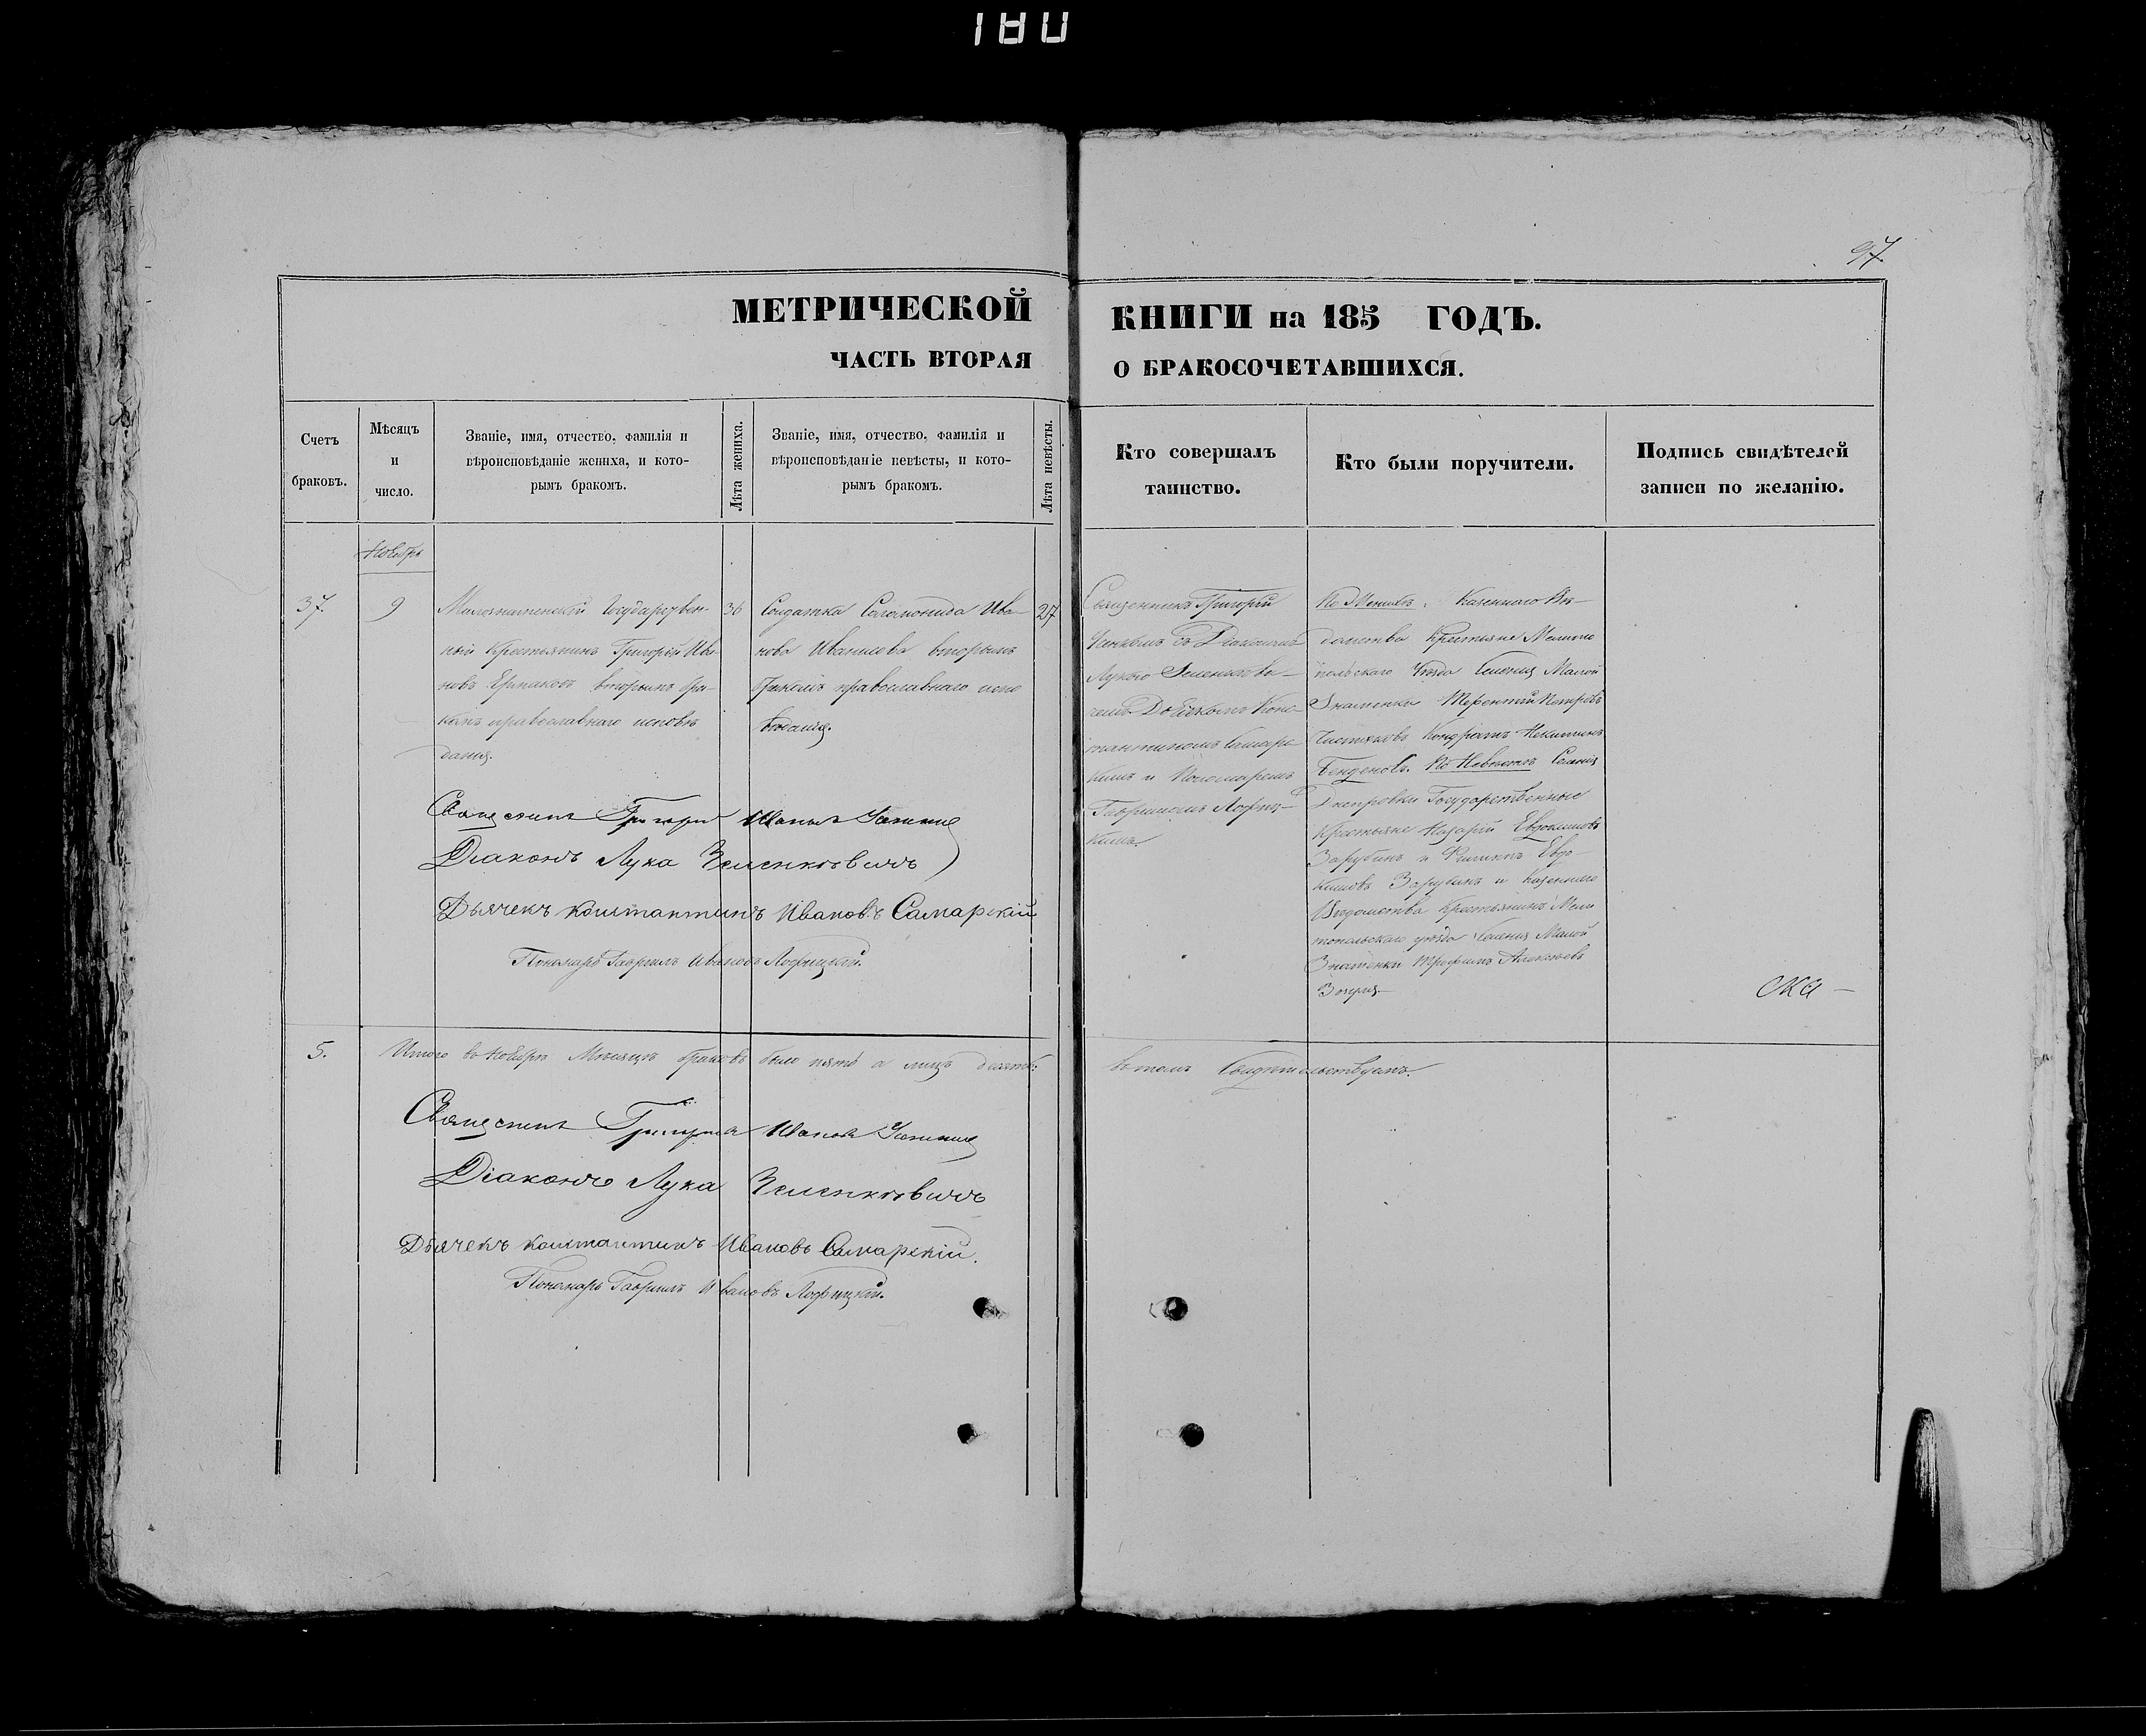 180
97
МЕТРИЧЕСКОЙ КНИГИ на 185 ГОДЪ.
ЧАСТЬ ВТОРАЯ О БРАКОСОЧЕТАВШИХСЯ.
Счетъ
браковъ.
Мѣсяцъ
и
число.
Званіе, имя, отчество, фамилія и
вѣроисповѣданіе жениха, и кото-
рымъ бракомъ.
Лѣта жениха.
Званіе, имя, отчество, фамилія и
вѣроисповѣданіе невѣсты, и кото-
рымъ бракомъ.
Лѣта невѣсты.
Кто совершалъ
таинство.
Кто были поручители.
Подпись свидѣтелей
записи по желанію.
Ноябрь
37.
9
Малознаменскій Государствен-
ный Крестьянинъ Григорій Ива-
новъ Ермаковъ вторымъ бра-
комъ православнаго исповѣ
данія.
36
Солдатка Соломонида Ива-
нова вторымъ
бракомъ православнаго испо
вѣданія.
27
Священникъ Григорій
съ Діакономъ
Лукою Зеленкеви-
чемъ Дьячкомъ Конс-
тантиномъ Самарс-
кимъ и Пономаремъ
Гавріиломъ
кимъ.
По Женихѣ: Казеннаго Вѣ-
домства Крестьяне Мелито
польскаго Уѣзда Селенія Малой
Знаменки Терентій Петровъ
Чистяковъ Кондратъ Никитинъ
По Невѣстѣ Селенія
Днепровки Государственные
Крестьяне Назарій Евдокимовъ
Зарубинъ и Филипъ Евдо-
кимовъ Зарубинъ и Казеннаго
Вѣдомства Крестьянинъ Мели
топольскаго уѣзда Селенія Малой
Знаменки Трофимъ Алексѣевъ
Священникъ Григорій Ивановъ
Діаконъ Лука Зеленкевичъ
Дьячекъ Константинъ Ивановъ Самарскій
Пономарь Гавріилъ Ивановъ
5.
Итого въ Ноябрѣ Мѣсяцѣ браковъ было пять а лицъ десять: въ томъ Свидѣтельствуемъ.
Священникъ Григорій Ивановъ
Діаконъ Лука Зеленкевичъ
Дьячекъ Константинъ Ивановъ Самарскій.
Пономарь Гавріилъ Ивановъ